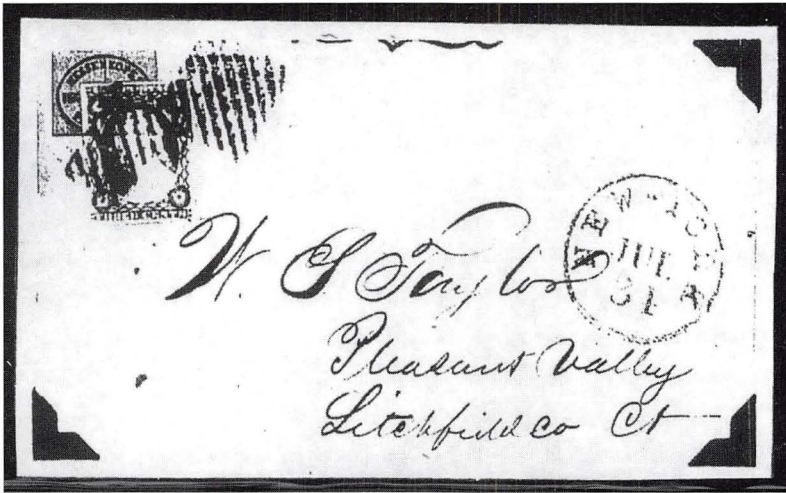 NEW-YORK
JUL
31
W. S Taylor
Pleasant Valley
Litchfield co Ct